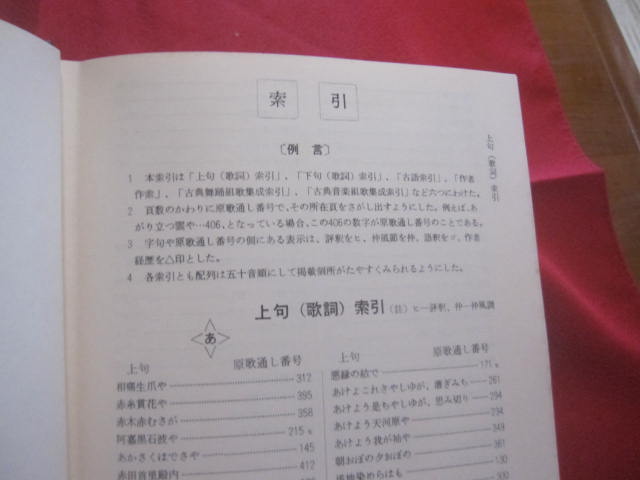 索引
〔例言〕
1 本索引は「上句（歌詞）索引」、「下句（歌詞）索引」、「古語索引」、「作者
作索」、「古典舞踊組歌集成索引」、「古典音楽組歌集成索引」など六つにわけた。
2 頁数のかわりに原歌通し番号で、その所在頁をさがし出すようにした。例えば、あ
がり立つ雲や…406、となっている場合、この406の数字が原歌通し番号のことである。
3 字句や原歌通し番号の側にある表示は、評釈をヒ、仲風節を仲、語釈をゴ、作者
経歴を△印とした。
4 各索引とも配列は五十音順にして掲載個所がたやすくみられるようにした。
上句（歌詞）索引
上句（歌詞）索引（註）ヒ―評釈、仲―仲風調
あ
上句 原歌通し番号
相痛生爪や 312
赤糸貫花や 395
赤木赤むさが 358
阿嘉黒石渡や 215
あかさくはでさや 145
赤田首里殿内 412
上句 原歌通し番号
悪縁の結で 171
あけよこれさやしゆが、潘ぎみち 261
あけよう是ちやしゆが、思み切り 294
あけよう天河原や 294
あけよう我が始や 349
朝おぼの夕おぼの 361
浅地染めらはも 130